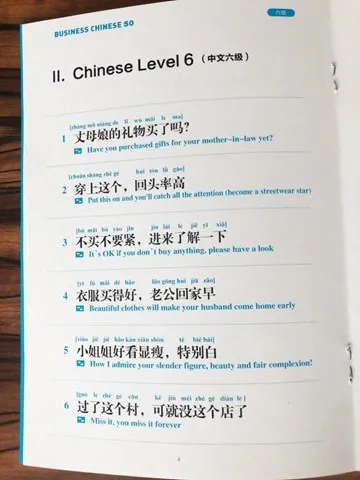 BUSINESS CHINESE 50
六级
II. Chinese Level 6 (中文六级)
[zhàng mǔ niáng de lǐ wù mǎi le ma]
1 丈母娘的礼物买了吗?
Have you purchased gifts for your mother-in-law yet?
[chuān shàng zhè gè huí tóu lǜ gāo]
2 穿上这个,回头率高
Put this on and you'll catch all the attention (become a streetwear star)
[bù mǎi bú yào jǐn jìn lái le jiě yī xià]
3 不买不要紧,进来了解一下
It's OK if you don't buy anything, please have a look
[yī fú mǎi dé hǎo lǎo gōng huí jiā zǎo]
4 衣服买得好,老公回家早
Beautiful clothes will make your husband come home early
[xiǎo jiě jiě hǎo kàn xiǎn shòu tè bié bái]
5 小姐姐好看显瘦,特别白
How I admire your slender figure, beauty and fair complexion!
[guò le zhè gè cūn kě jiù méi zhè gè diàn le]
6 过了这个村,可就没这个店了
Miss it, you miss it forever